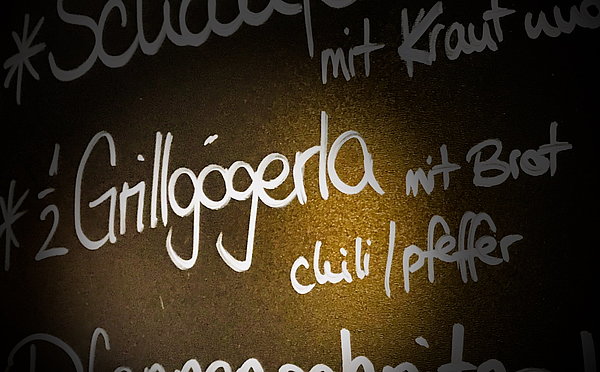 * Schäufe
mit Kraut und
* 1/2 Grillgögerla mit Brot
chili/pfeffer